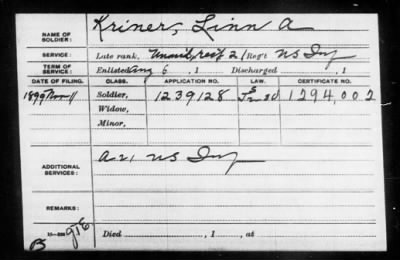 NAME OF SOLDIER: Kriner, Linn A
SERVICE: Late rank, Unassd, rect 21 Reg't US Inf
TERM OF SERVICE: Enlisted 6, 1 Discharged , 1
DATE OF FILING. CLASS. APPLICATION NO. LAW. CERTIFICATE NO.
1899 Nov 11 Soldier, 1239128 1294,002
Widow,
Minor,
ADDITIONAL SERVICES: A 21 US Inf
REMARKS:
Died , 1 , at